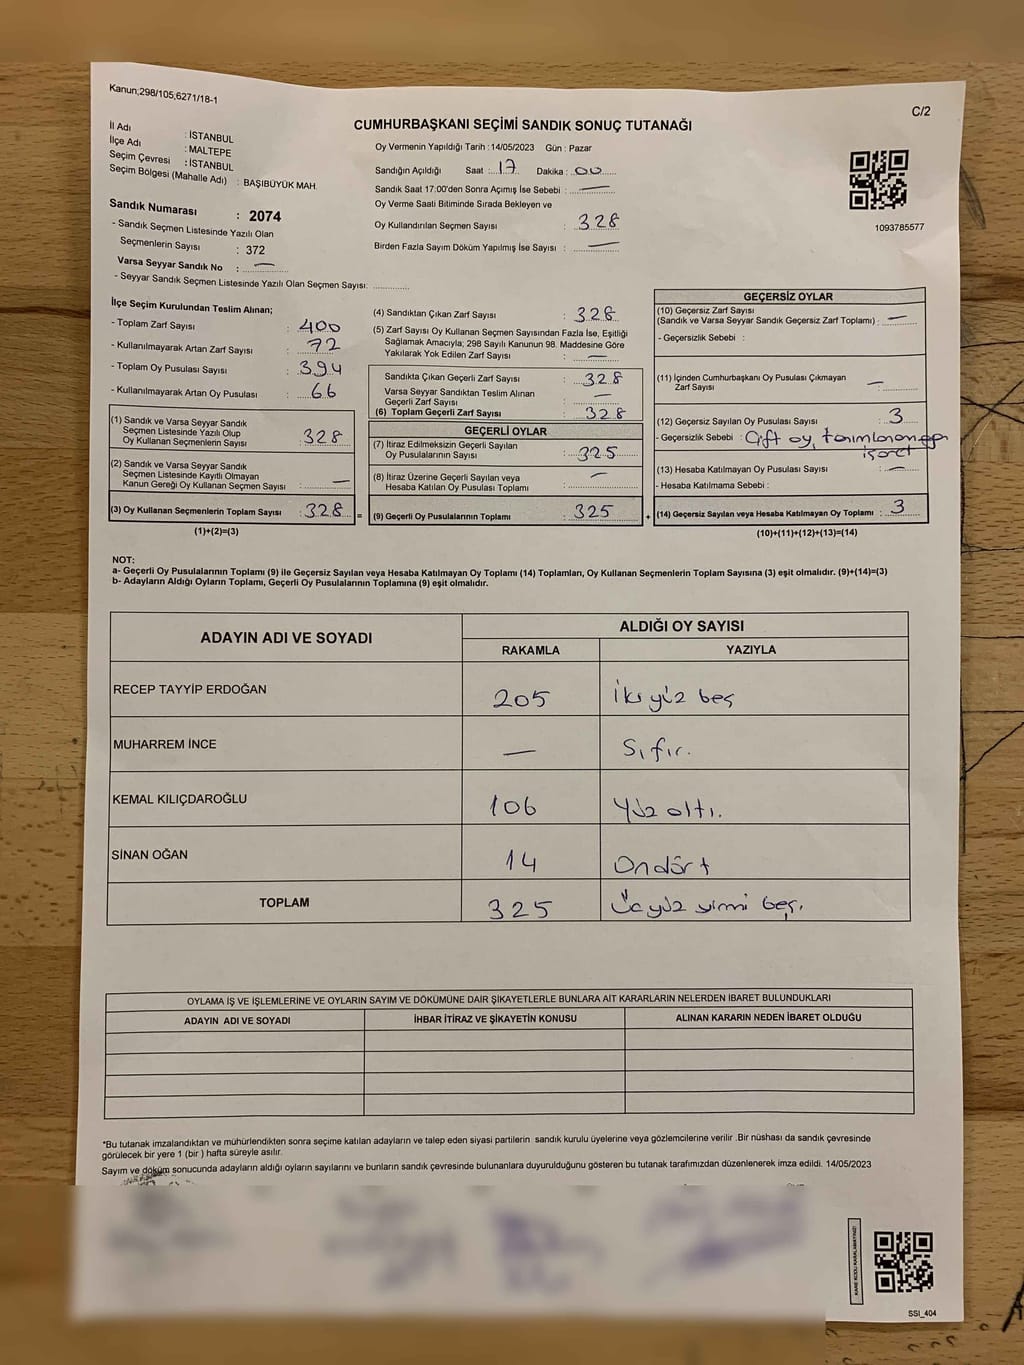 Kanun;298/105,6271/18-1
C/2
CUMHURBAŞKANI SEÇİMİ SANDIK SONUÇ TUTANAĞI
İl Adı : İSTANBUL
İlçe Adı : MALTEPE
Seçim Çevresi : İSTANBUL
Seçim Bölgesi (Mahalle Adı) : BAŞIBÜYÜK MAH.
Oy Vermenin Yapıldığı Tarih : 14/05/2023 Gün : Pazar
Sandığın Açıldığı Saat : 17 Dakika : 00
Sandık Saat 17:00'den Sonra Açımış İse Sebebi : —
Oy Verme Saati Bitiminde Sırada Bekleyen ve
Oy Kullandırılan Seçmen Sayısı : 328
Birden Fazla Sayım Döküm Yapılmış İse Sayısı : —
1093785577
Sandık Numarası : 2074
- Sandık Seçmen Listesinde Yazılı Olan
Seçmenlerin Sayısı : 372
Varsa Seyyar Sandık No : —
- Seyyar Sandık Seçmen Listesinde Yazılı Olan Seçmen Sayısı: ............
İlçe Seçim Kurulundan Teslim Alınan;
- Toplam Zarf Sayısı : 400
- Kullanılmayarak Artan Zarf Sayısı : 72
- Toplam Oy Pusulası Sayısı : 394
- Kullanılmayarak Artan Oy Pusulası : 66
(1) Sandık ve Varsa Seyyar Sandık
Seçmen Listesinde Yazılı Olup
Oy Kullanan Seçmenlerin Sayısı : 328
(2) Sandık ve Varsa Seyyar Sandık
Seçmen Listesinde Kayıtlı Olmayan
Kanun Gereği Oy Kullanan Seçmen Sayısı : —
(3) Oy Kullanan Seçmenlerin Toplam Sayısı : 328 =
(1)+(2)=(3)
(4) Sandıktan Çıkan Zarf Sayısı : 328
(5) Zarf Sayısı Oy Kullanan Seçmen Sayısından Fazla İse, Eşitliği
Sağlamak Amacıyla; 298 Sayılı Kanunun 98. Maddesine Göre
Yakılarak Yok Edilen Zarf Sayısı : —
Sandıkta Çıkan Geçerli Zarf Sayısı : 328
Varsa Seyyar Sandıktan Teslim Alınan
Geçerli Zarf Sayısı : —
(6) Toplam Geçerli Zarf Sayısı : 328
GEÇERLİ OYLAR
(7) İtiraz Edilmeksizin Geçerli Sayılan
Oy Pusulalarının Sayısı : 325
(8) İtiraz Üzerine Geçerli Sayılan veya
Hesaba Katılan Oy Pusulası Toplamı : —
(9) Geçerli Oy Pusulalarının Toplamı : 325 +
GEÇERSİZ OYLAR
(10) Geçersiz Zarf Sayısı
(Sandık ve Varsa Seyyar Sandık Geçersiz Zarf Toplamı) : —
- Geçersizlik Sebebi :
(11) İçinden Cumhurbaşkanı Oy Pusulası Çıkmayan
Zarf Sayısı : —
(12) Geçersiz Sayılan Oy Pusulası Sayısı : 3
- Geçersizlik Sebebi : Çift oy, tanımlanamayan
işaret
(13) Hesaba Katılmayan Oy Pusulası Sayısı : —
- Hesaba Katılmama Sebebi :
(14) Geçersiz Sayılan veya Hesaba Katılmayan Oy Toplamı : 3
(10)+(11)+(12)+(13)=(14)
NOT:
a- Geçerli Oy Pusulalarının Toplamı (9) ile Geçersiz Sayılan veya Hesaba Katılmayan Oy Toplamı (14) Toplamları, Oy Kullanan Seçmenlerin Toplam Sayısına (3) eşit olmalıdır. (9)+(14)=(3)
b- Adayların Aldığı Oyların Toplamı, Geçerli Oy Pusulalarının Toplamına (9) eşit olmalıdır.
ADAYIN ADI VE SOYADI ALDIĞI OY SAYISI
RAKAMLA YAZIYLA
RECEP TAYYİP ERDOĞAN 205 İki yüz beş
MUHARREM İNCE — Sıfır.
KEMAL KILIÇDAROĞLU 106 Yüz altı.
SİNAN OĞAN 14 Ondört
TOPLAM 325 Üçyüz yirmi beş.
OYLAMA İŞ VE İŞLEMLERİNE VE OYLARIN SAYIM VE DÖKÜMÜNE DAİR ŞİKAYETLERLE BUNLARA AİT KARARLARIN NELERDEN İBARET BULUNDUKLARI
ADAYIN ADI VE SOYADI İHBAR İTİRAZ VE ŞİKAYETİN KONUSU ALINAN KARARIN NEDEN İBARET OLDUĞU
*Bu tutanak imzalandıktan ve mühürlendikten sonra seçime katılan adayların ve talep eden siyasi partilerin sandık kurulu üyelerine veya gözlemcilerine verilir .Bir nüshası da sandık çevresinde
görülecek bir yere 1 (bir ) hafta süreyle asılır.
Sayım ve döküm sonucunda adayların aldığı oyların sayılarını ve bunların sandık çevresinde bulunanlara duyurulduğunu gösteren bu tutanak tarafımızdan düzenlenerek imza edildi. 14/05/2023
SSI_404